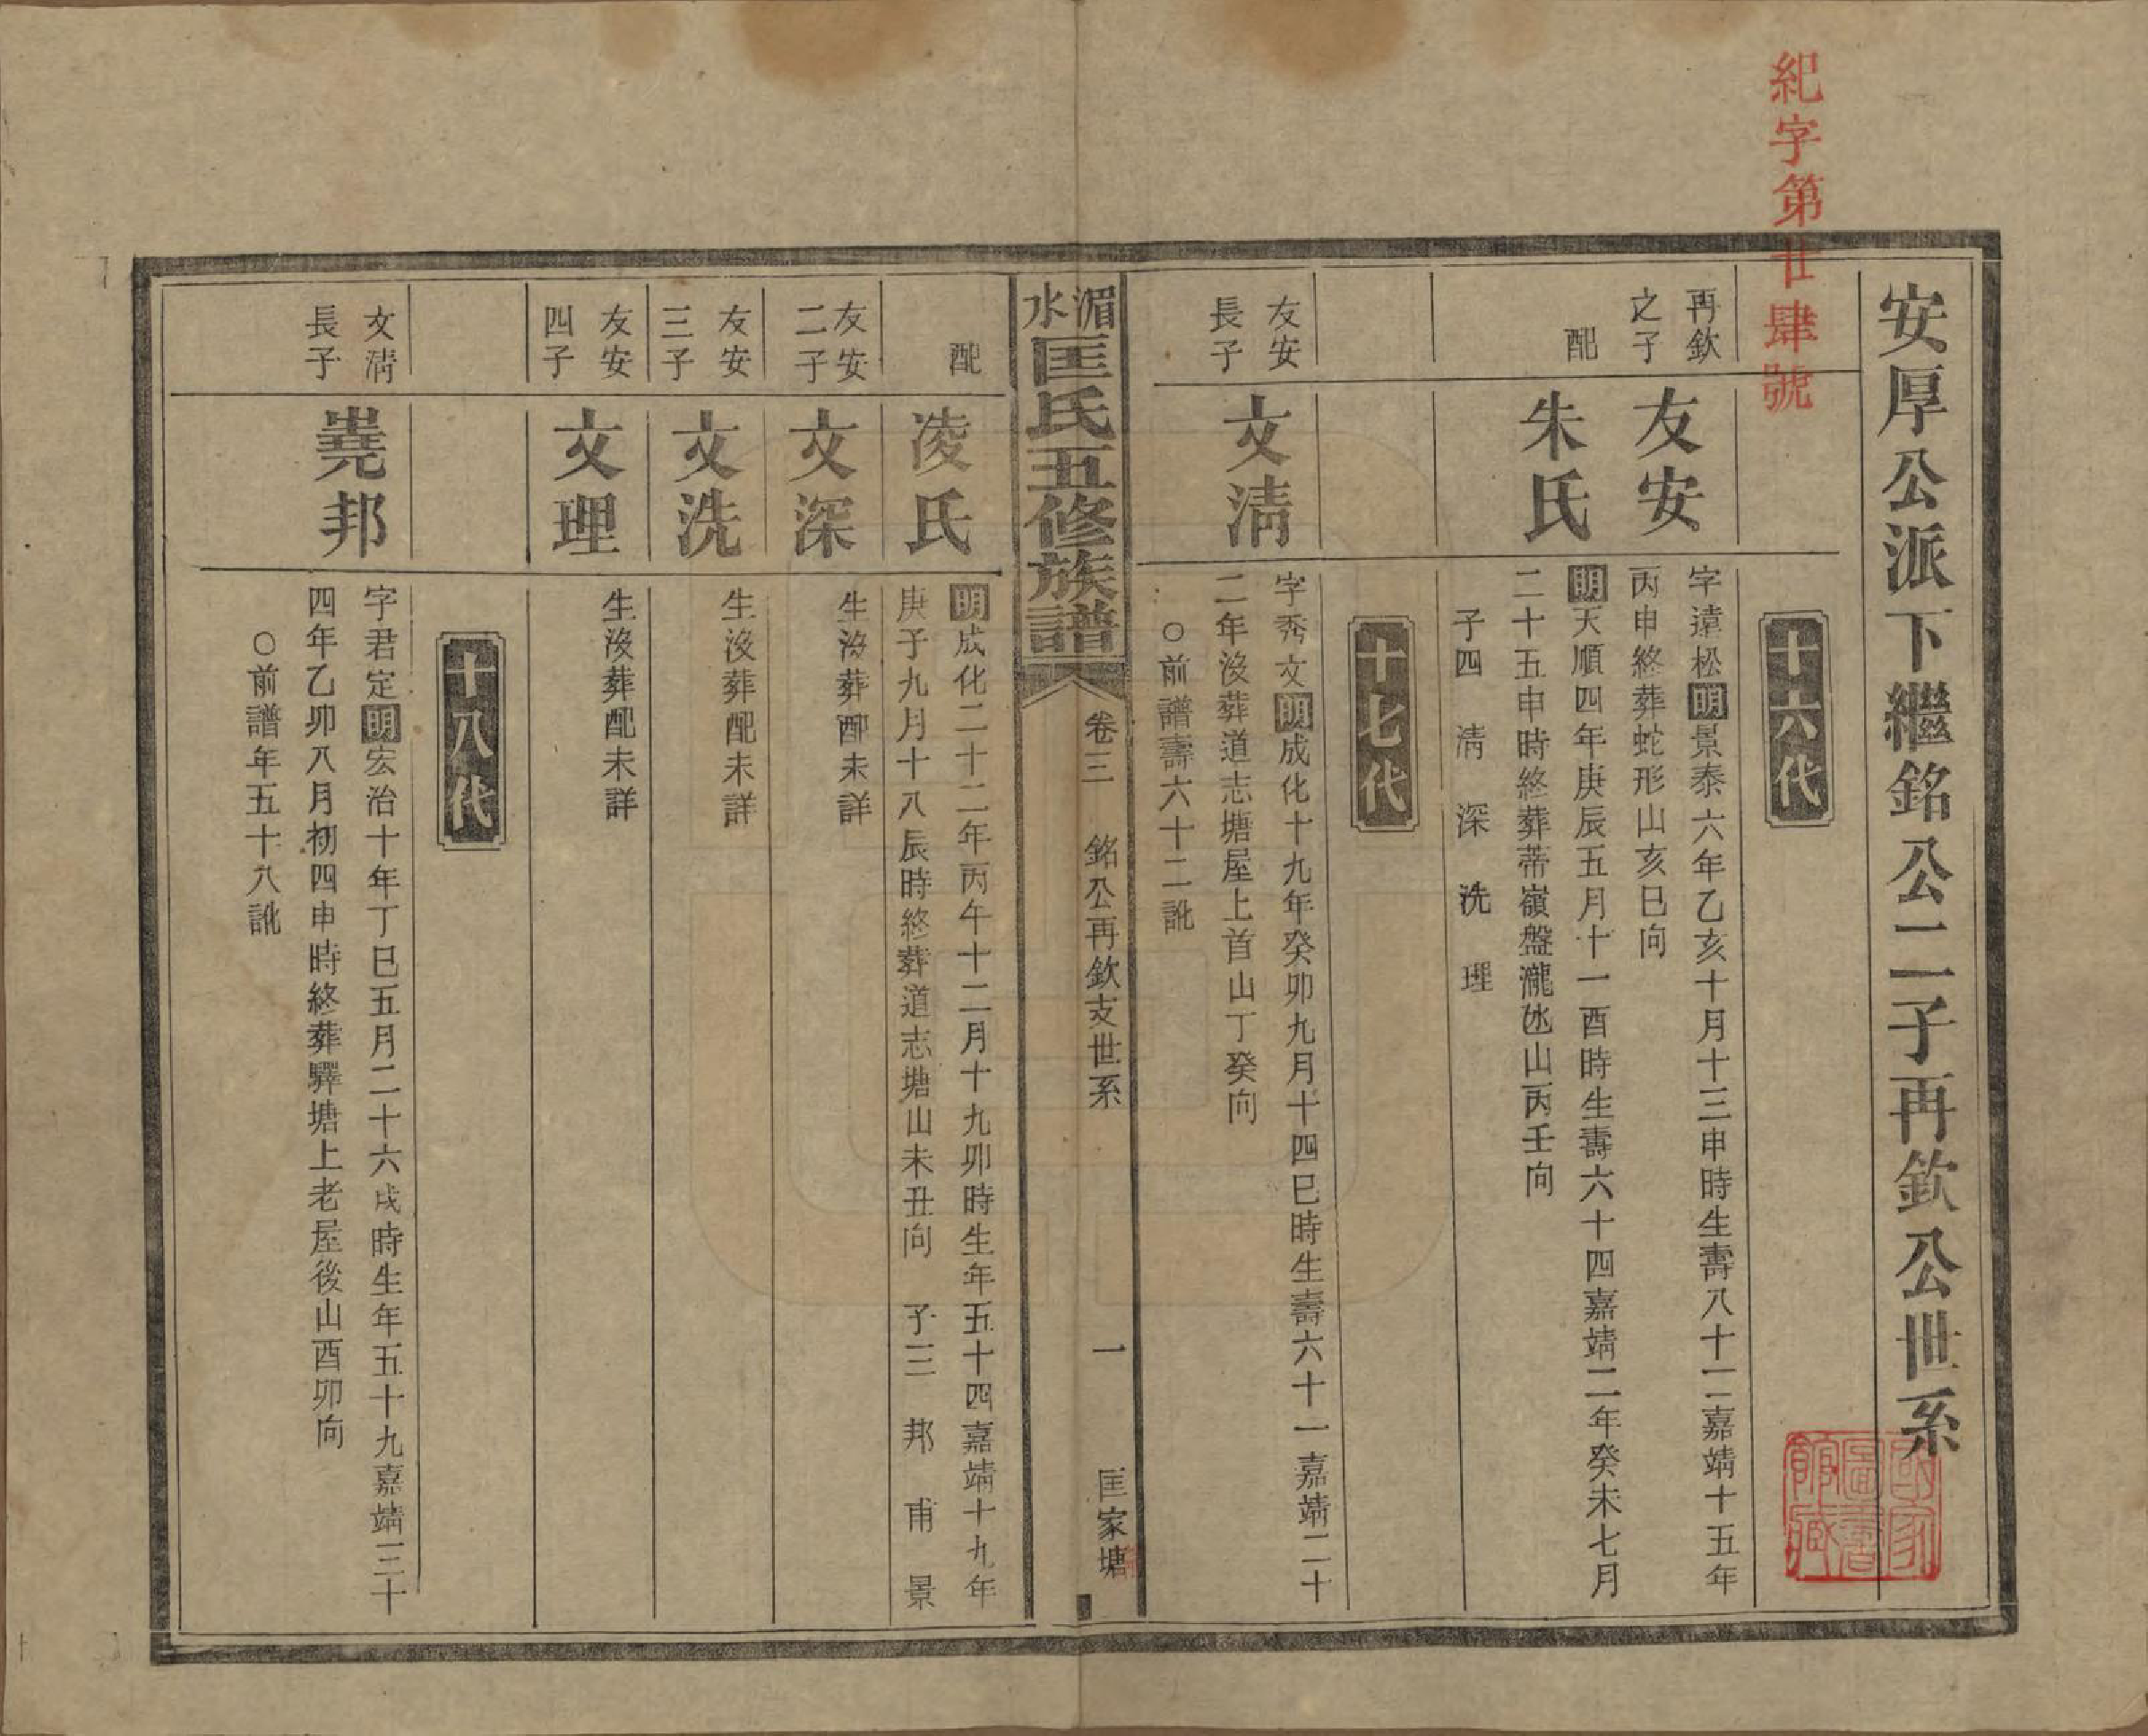 紀字第廿肆號
安厚公派下繼銘公二子再欽公世系
十六代
再欽
之子
友安
字遠松明景泰六年乙亥十月十三申時生壽八十二嘉靖十五年
丙申終葬蛇形山亥巳向
配
朱氏
明天順四年庚辰五月十一酉時生壽六十四嘉靖二年癸未七月
二十五申時終葬蒂嶺盤瀧氹山丙壬向
子四 清 深 洗 理
十七代
友安
長子
文清
字秀文明成化十九年癸卯九月十四巳時生壽六十一嘉靖二十
二年沒葬道志塘屋上首山丁癸向
○前譜壽六十二訛
湄水匡氏五修族譜
卷三 銘公再欽支世系
一
匡家塘
配
凌氏
明成化二十二年丙午十二月十九卯時生年五十四嘉靖十九年
庚子九月十八辰時終葬道志塘山未丑向 子三 邦 甫 景
友安
二子
文深
生沒葬配未詳
友安
三子
文洗
生沒葬配未詳
友安
四子
文理
生沒葬配未詳
十八代
文清
長子
堯邦
字君定明宏治十年丁巳五月二十六戌時生年五十九嘉靖三十
四年乙卯八月初四申時終葬驛塘上老屋後山酉卯向
○前譜年五十八訛
國家圖書館藏